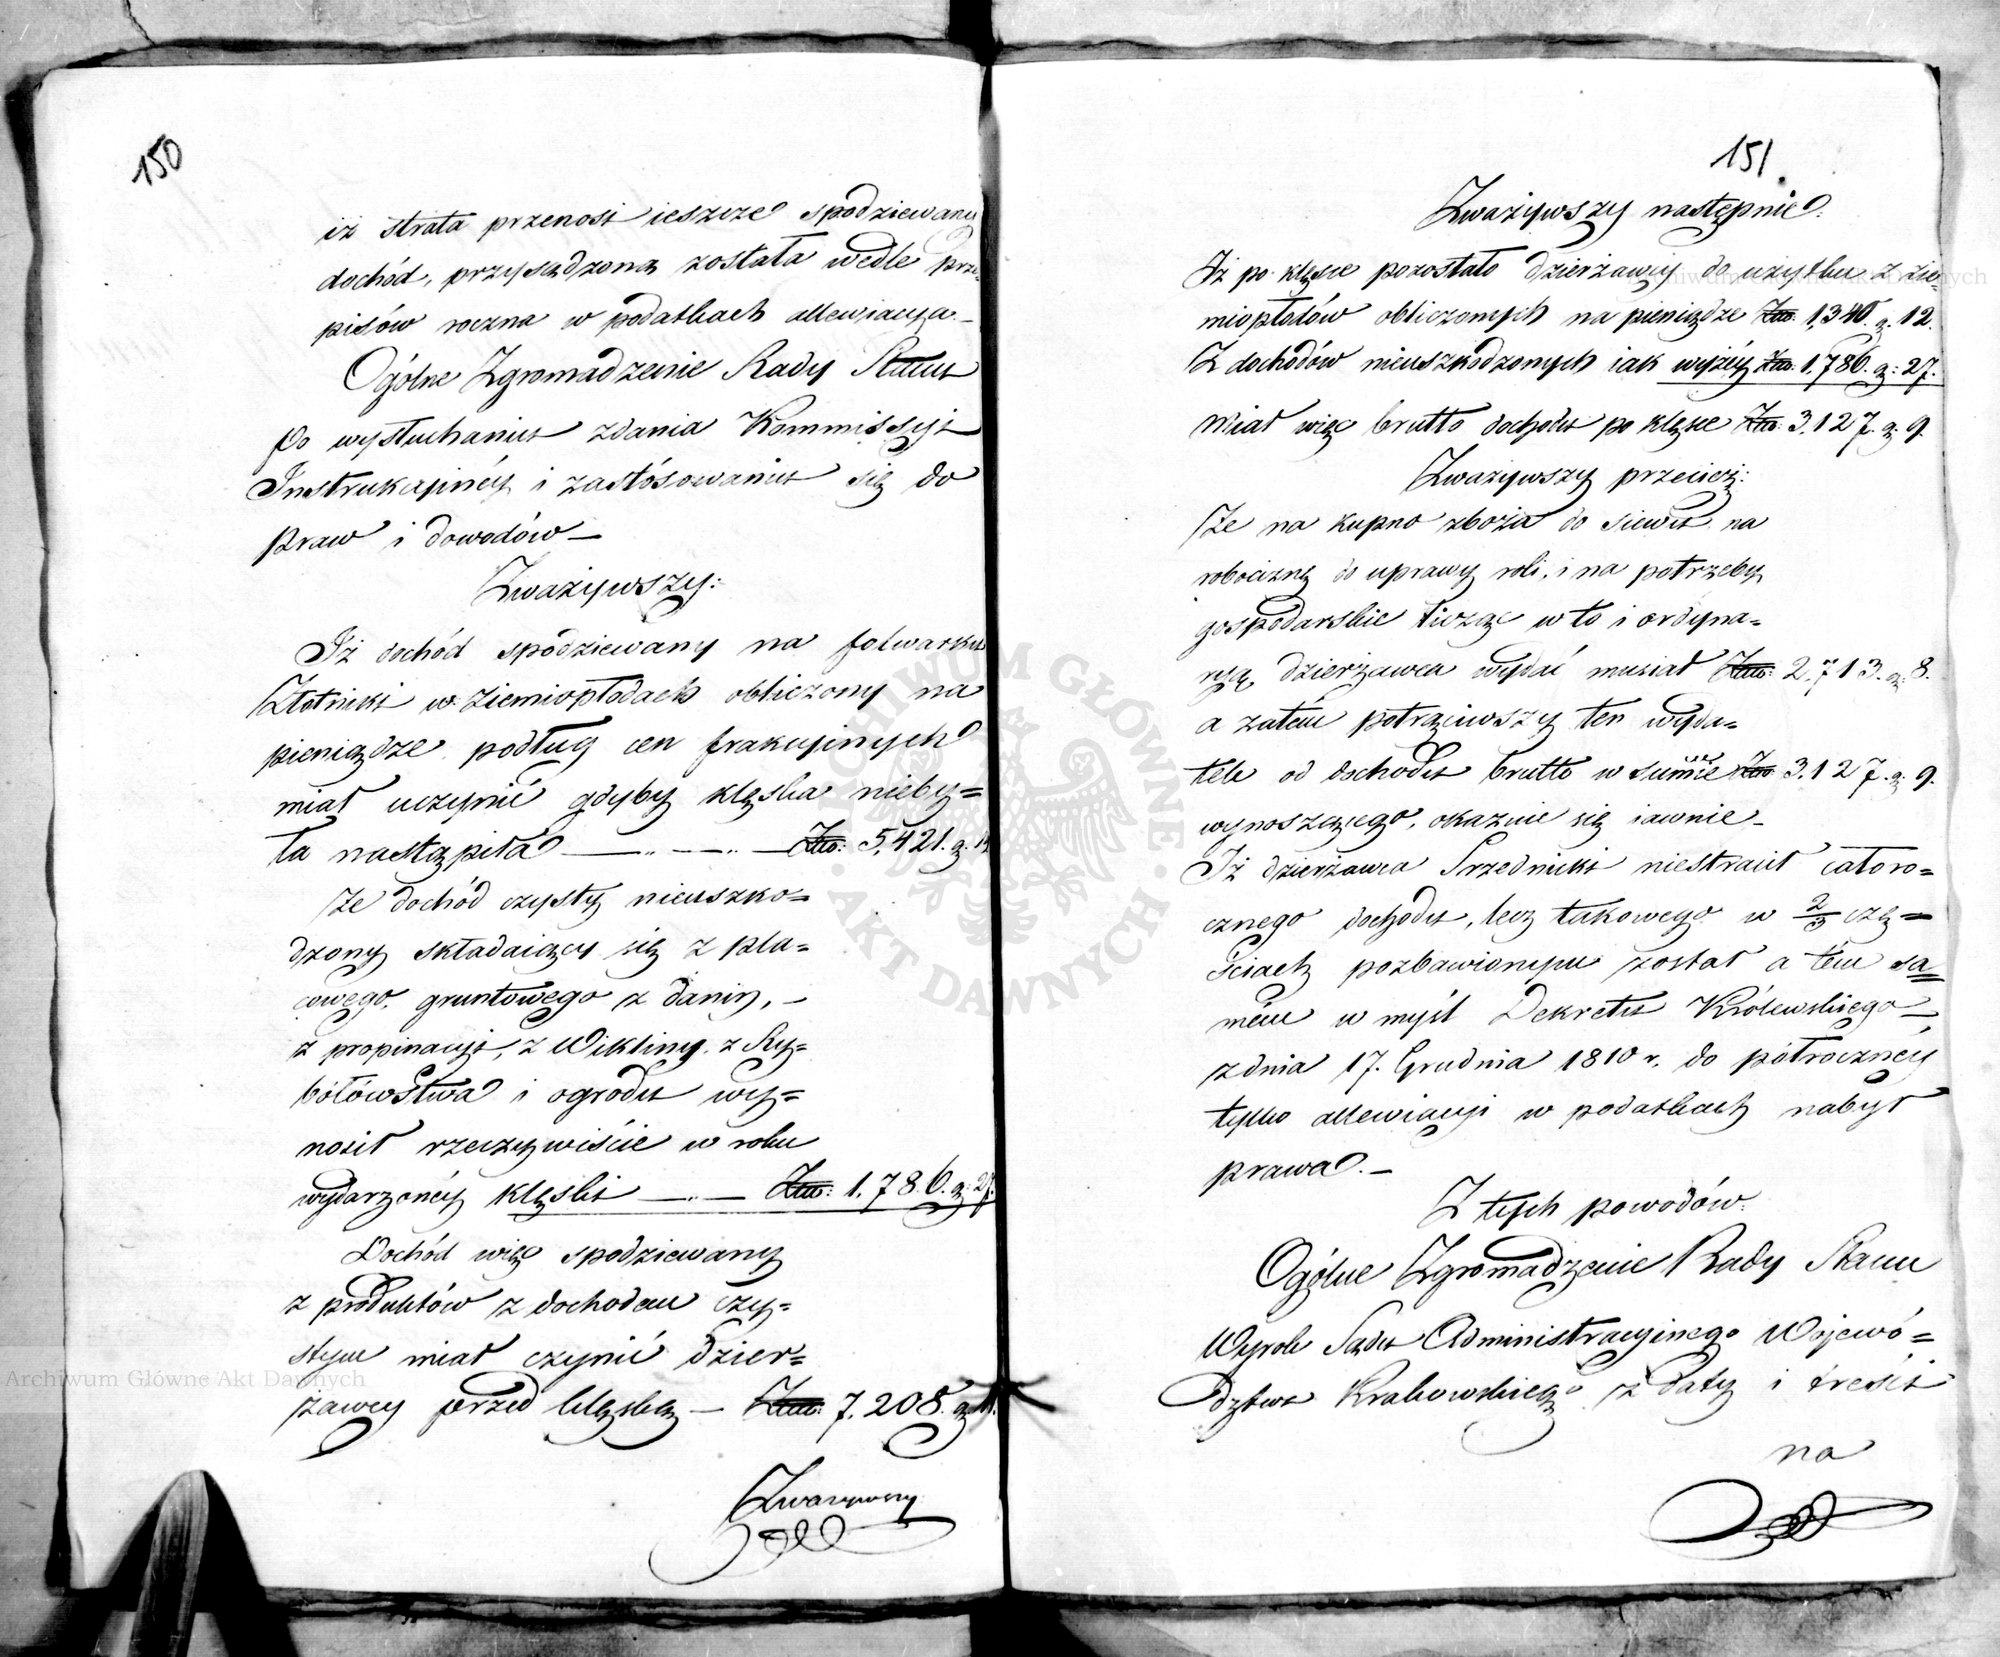 150
iż strata przenosi ieszcze spodziewany
dochód, przysądzoną została wedle prze=
pisów roczna w podatkach allewiacya.—
Ogólne Zgromadzenie Rady Stanu
po wysłuchaniu zdania Kommissyi
Instrukcyinéy i zastósowaniu się do
praw i dowodów—
Zważywszy:
Iż dochód spodziewany na folwarku
Złotniki w Ziemiopłodach obliczony na
pieniądze podług cen frakcyinych
miał uczynić gdyby klęska nieby=
ła nastąpiła — Złtt: 5,421. g.
Że dochód czysty nieuszko=
dzony składaiący się z pla=
cowego, gruntowego z danin, —
z propinacyi, z Wikliny, z Ry=
bołówstwa i ogrodu wy=
nosił rzeczywiście w roku
wydarzonéy klęski — Złtt: 1,786. g: 27.
Dochód więc spodziewany
z produktów z dochodem czy=
stym miał czynić dzier=
żawcy przed klęską — Złtt: 7,208. g:
Zważywszy
151
Zważywszy następnie:
Iż po klęsce pozostało dzierżawcy do użytku z zie=
miopłodów obliczonych na pieniądze Złtt: 1,340. g. 12.
Z dochodów nieuszkodzonych iak wyżéy Złtt: 1,786. g: 27.
Miał więc brutto dochodu po klęsce Złtt: 3,127. g: 9.
Zważywszy przecież:
Że na kupno zboża do siewu na
robociznę do uprawy roli, i na potrzeby
gospodarskie licząc w to i ordyna=
ryą, dzierżawca wydać musiał Złtt: 2,713. g: 8.
a zatem potrąciwszy ten wyda=
tek od dochodu brutto w summie Złtt 3,127. g: 9.
wynoszącego, okazuie się iawnie—
Iż dzierżawca Srzednicki niestracił całoro=
cznego dochodu, lecz takowego w 2/3 czę=
ściach pozbawionym został a tém sa=
mém w myśl Dekretu Królewskiego—
z dnia 17. Grudnia 1810 r. do półrocznéy
tylko allewiacyi w podatkach nabył
prawa.—
Z tych powodów:
Ogólne Zgromadzenie Rady Stanu
Wyrok Sądu Administracyinego Wojewó=
dztwa Krakowskiego z daty i treści
na
Archiwum Główne Akt Dawnych
Archiwum Główne Akt Dawnych
ARCHIWUM GŁÓWNE · AKT DAWNYCH ·